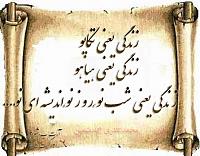 زندگی یعنی تکاپو
زندگی یعنی هیاهو
زندگی یعنی شب نو، روز نو، اندیشه ای نو...